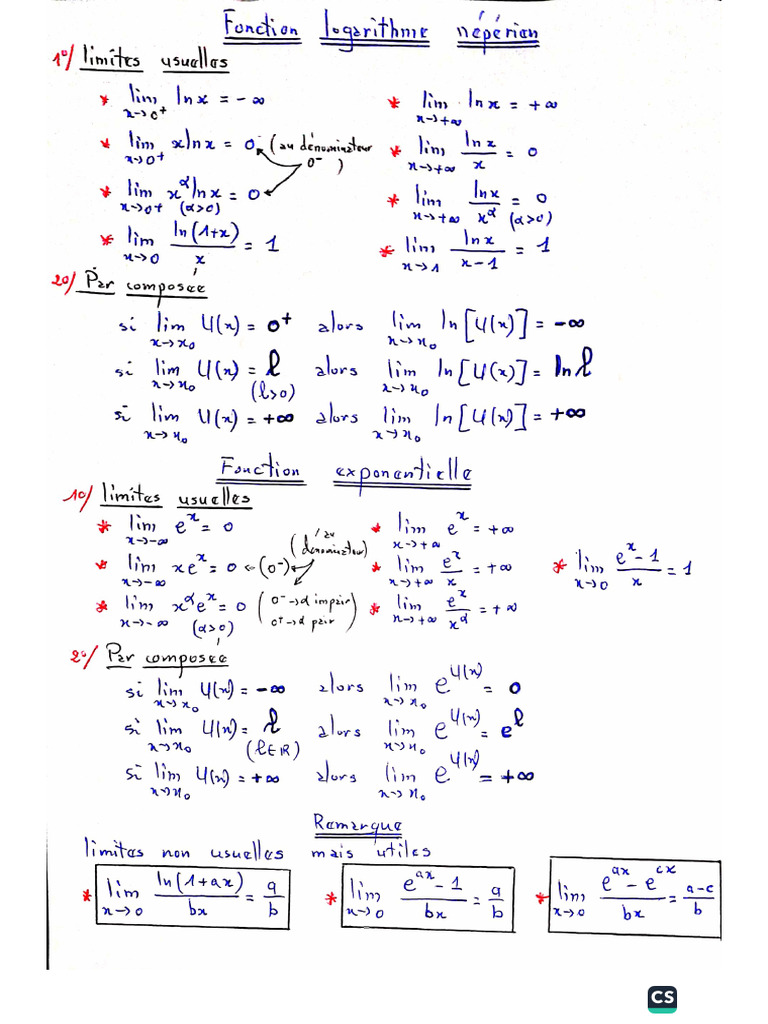 Fonction logarithme népérien
1°/ limites usuelles
* lim x→0⁺ lnx = -∞
* lim x→+∞ lnx = +∞
* lim x→0⁺ xlnx = 0⁻ (au dénominateur 0⁻)
* lim x→+∞ lnx/x = 0
* lim x→0⁺ x^α lnx = 0 (α>0)
* lim x→+∞ lnx/x^α = 0 (α>0)
* lim x→0 ln(1+x)/x = 1
* lim x→1 lnx/x-1 = 1
2°/ Par composée
si lim x→x₀ U(x) = 0⁺ alors lim x→x₀ ln[U(x)] = -∞
si lim x→x₀ U(x) = ℓ (ℓ>0) alors lim x→x₀ ln[U(x)] = ln ℓ
si lim x→x₀ U(x) = +∞ alors lim x→x₀ ln[U(x)] = +∞
Fonction exponentielle
1°/ limites usuelles
* lim x→-∞ e^x = 0
* lim x→+∞ e^x = +∞
* lim x→-∞ xe^x = 0 ← (0⁻) (au dénominateur)
* lim x→+∞ e^x/x = +∞
* lim x→0 e^x - 1/x = 1
* lim x→-∞ x^α e^x = 0 (α>0) (0⁻→α impair 0⁺→α pair)
* lim x→+∞ e^x/x^α = +∞
2°/ Par composée
si lim x→x₀ U(x) = -∞ alors lim x→x₀ e^U(x) = 0
si lim x→x₀ U(x) = ℓ (ℓ∈ℝ) alors lim x→x₀ e^U(x) = e^ℓ
si lim x→x₀ U(x) = +∞ alors lim x→x₀ e^U(x) = +∞
Remarque
limites non usuelles mais utiles
* lim x→0 ln(1+ax)/bx = a/b
* lim x→0 e^ax - 1/bx = a/b
* lim x→0 e^ax - e^cx/bx = a-c/b
CS